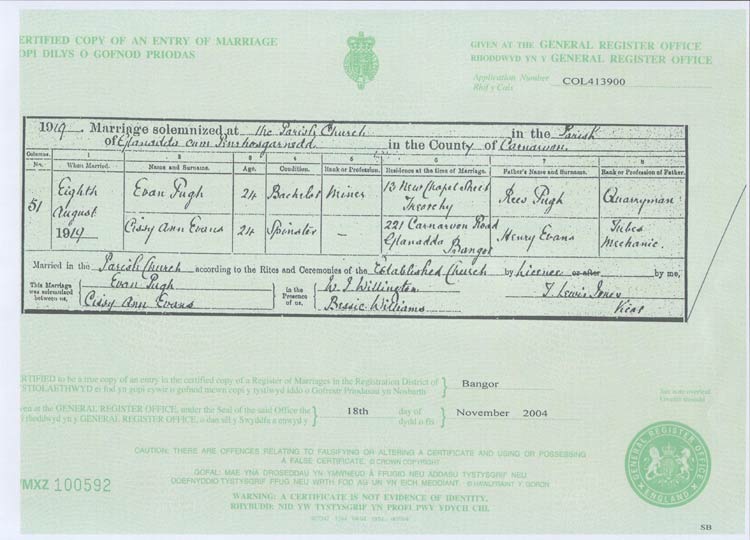 ERTIFIED COPY OF AN ENTRY OF MARRIAGE
OPI DILYS O GOFNOD PRIODAS
GIVEN AT THE GENERAL REGISTER OFFICE
RHODDWYD YN Y GENERAL REGISTER OFFICE
Application Number
Rhif y Cais
COL413900
1919. Marriage solemnized at the Parish Church in the Parish
of Glanadda cum Penrhosgarnedd in the County of Carnarvon.
Columns. 1 2 3 4 5 6 7 8
No. When Married. Name and Surname. Age. Condition. Rank or Profession. Residence at the time of Marriage. Father's Name and Surname. Rank or Profession of Father.
51
Eighth August 1919
Evan Pugh 24 Bachelor Miner 13 New Chapel Street Treorchy Rees Pugh Quarryman
Cissy Ann Evans 24 Spinster — 221 Carnarvon Road Glanadda Bangor Henry Evans Tubes Mechanic.
Married in the Parish Church according to the Rites and Ceremonies of the Established Church by Licence or after by me,
This Marriage was solemnized between us,
Evan Pugh
Cissy Ann Evans
in the Presence of us,
W. J. Willington
Bessie Williams
T. Lewis Jones
Vicar
RTIFIED to be a true copy of an entry in the certified copy of a Register of Marriages in the Registration District of
Bangor
en at the GENERAL REGISTER OFFICE, under the Seal of the said Office the
18th day of
dydd o fis
November 2004
CAUTION: THERE ARE OFFENCES RELATING TO FALSIFYING OR ALTERING A CERTIFICATE AND USING OR POSSESSING
A FALSE CERTIFICATE. © CROWN COPYRIGHT
GOFAL: MAE YNA DROSEDDAU YN YMWNEUD Â FFUGIO NEU ADDASU TYSTYSGRIF NEU
DDEFNYDDIO TYSTYSGRIF FFUG NEU WRTH FOD AG UN YN EICH MEDDIANT. © HAWLFRAINT Y GORON
WARNING: A CERTIFICATE IS NOT EVIDENCE OF IDENTITY.
RHYBUDD: NID YW TYSTYSGRIF YN PROFI PWY YDYCH CHI.
MXZ 100592
GENERAL REGISTER OFFICE
ENGLAND
SB